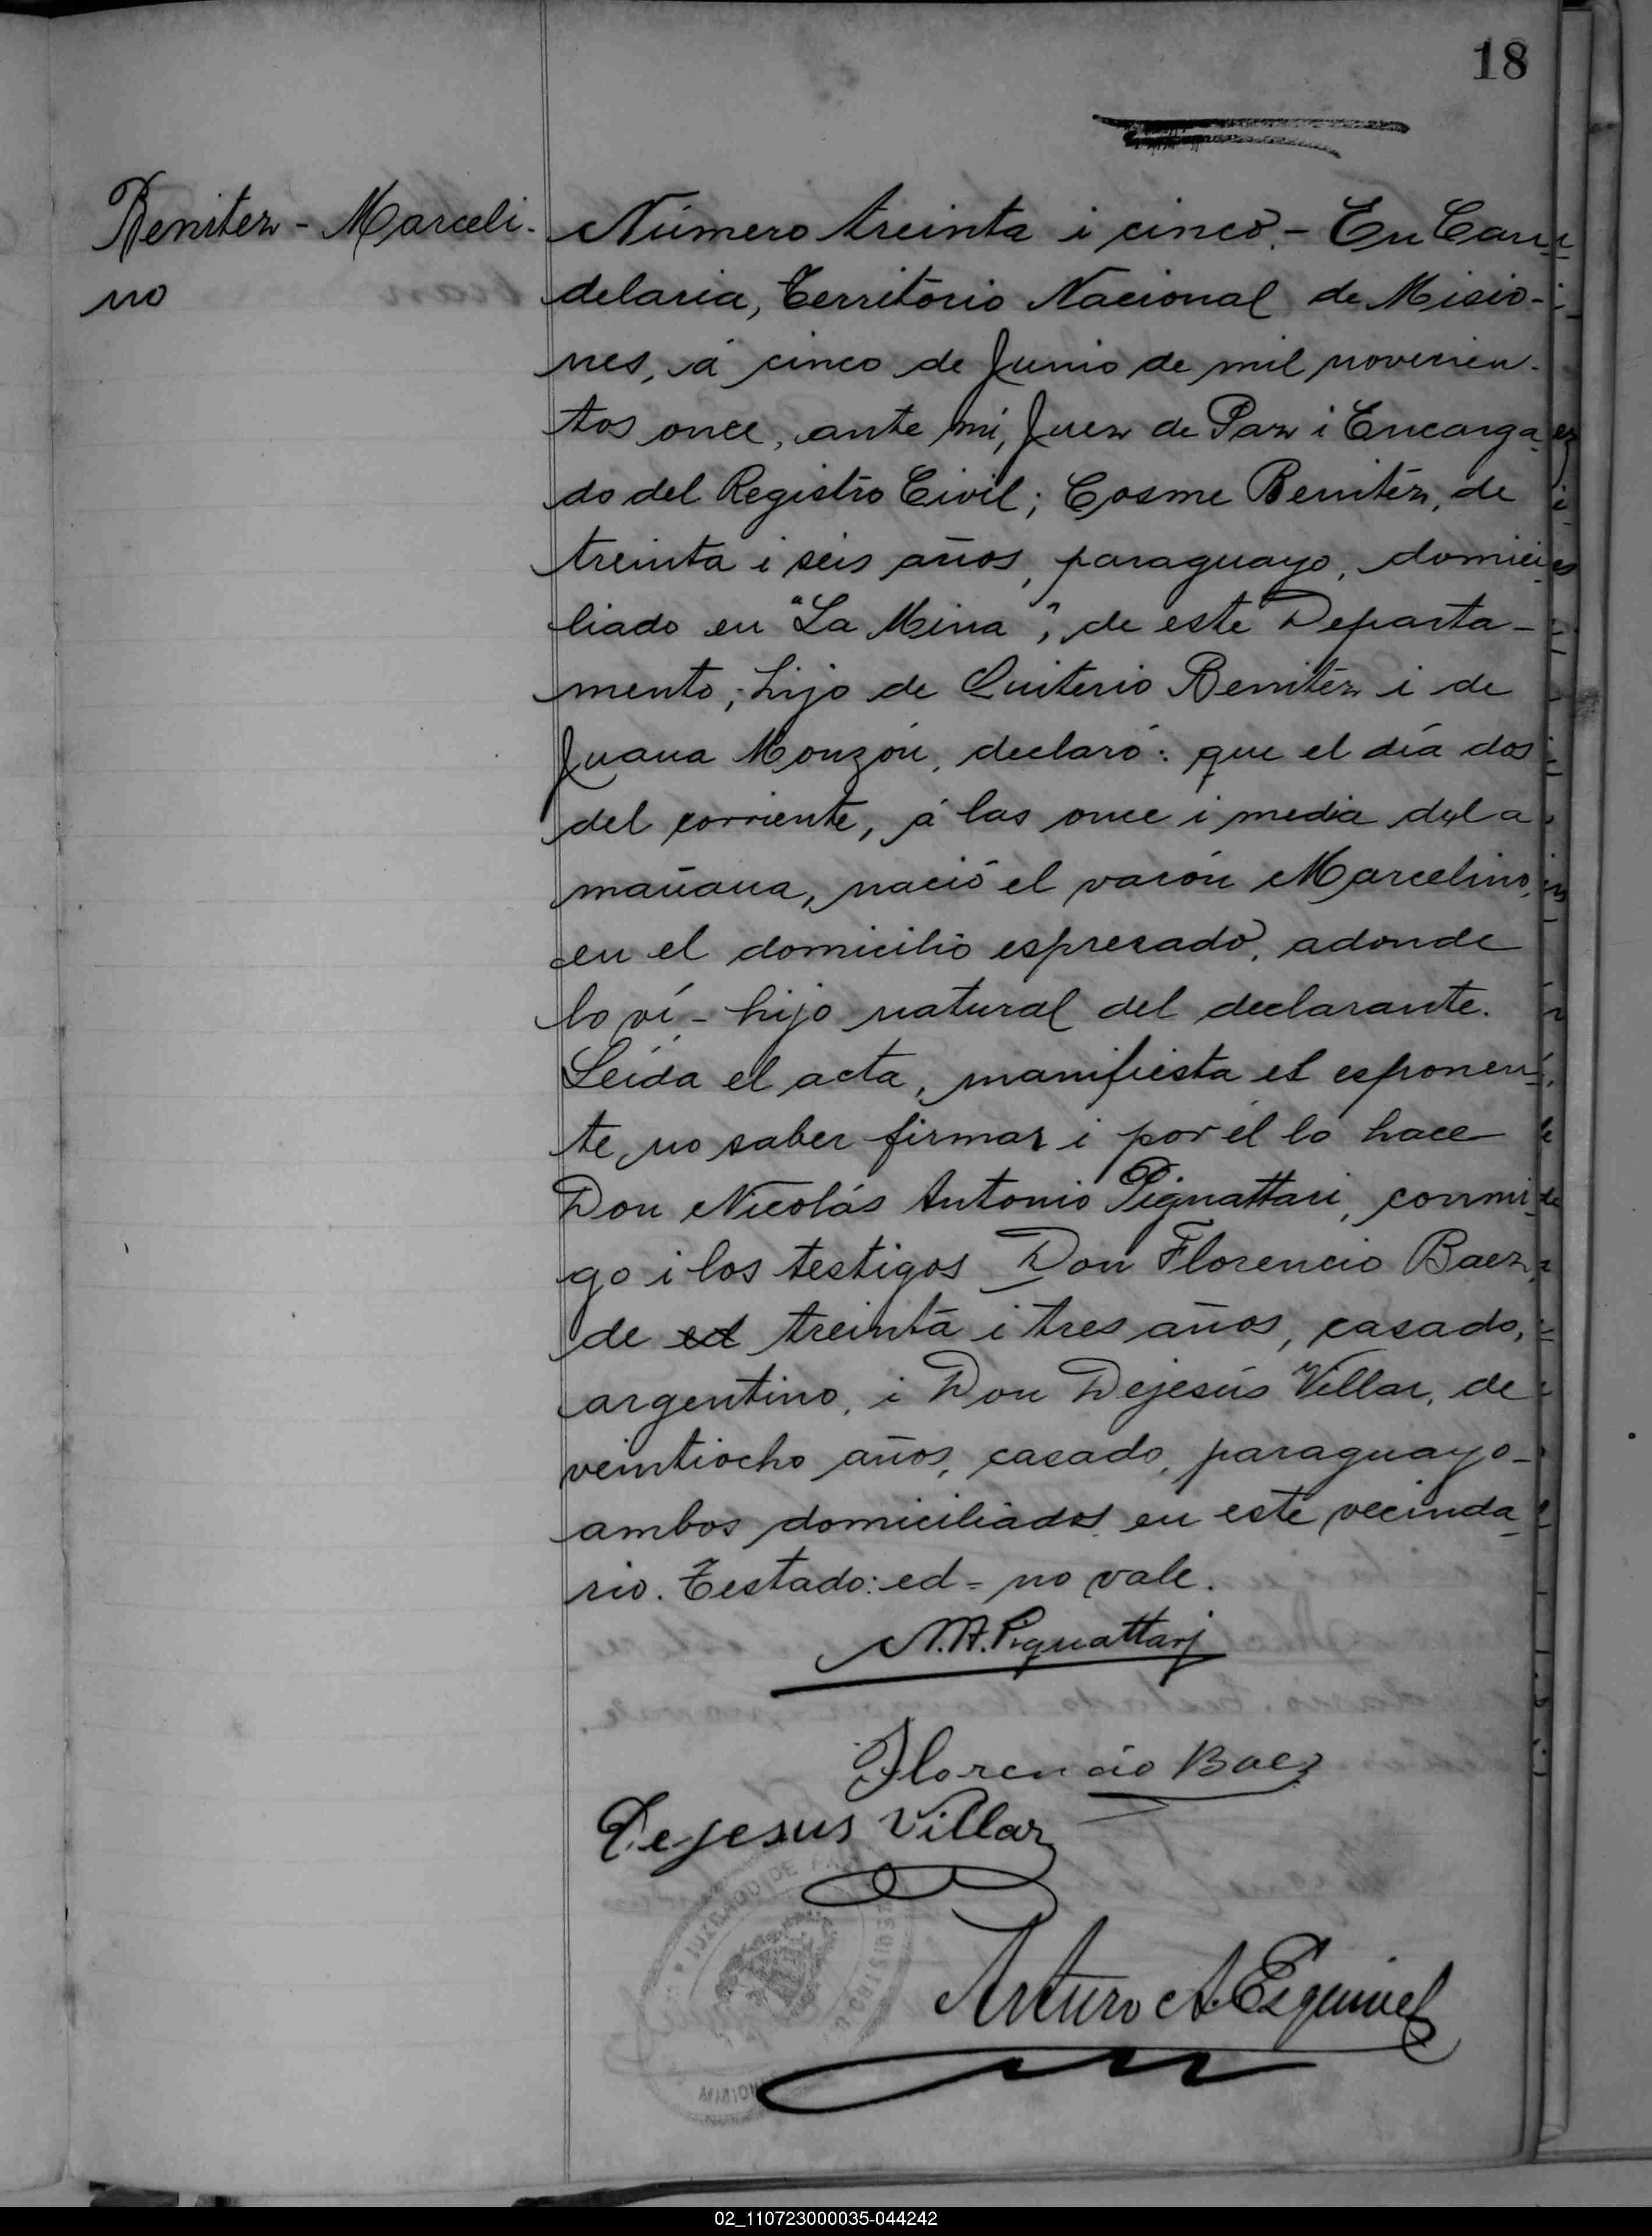 18
Benitez - Marceli-
no
Número treinta i cinco. - En Can
delaria, Territorio Nacional de Misio-
nes, á cinco de Junio de mil novecien-
tos once, ante mí, Juez de Paz i Encarga
do del Registro Civil; Cosme Benitéz, de
treinta i seis años, paraguayo, domici
liado en "La Mina", de este Departa-
mento, hijo de Quiterio Benitéz i de
Juana Monzón, declaró: que el día dos
del corriente, á las once i media de la
mañana, nació el varón Marcelino,
en el domicilio espresado, adonde
lo ví - hijo natural del declarante.
Leída el acta, manifiesta el esponen
te no saber firmar i por él lo hace
Don Nicolás Antonio Pignattari, conmi
go i los testigos Don Florencio Baez,
de ed treinta i tres años, casado,
argentino, i Don Dejesús Villar, de
veintiocho años, casado, paraguayo -
ambos domiciliados en este vecinda
rio. Testado: ed = no vale.
N. A. Pignattari
Florencio Baez
Dejesus Villar
JUZGADO DE PAZ
REGISTRO
Arturo A. Esquivel
02_110723000035-044242